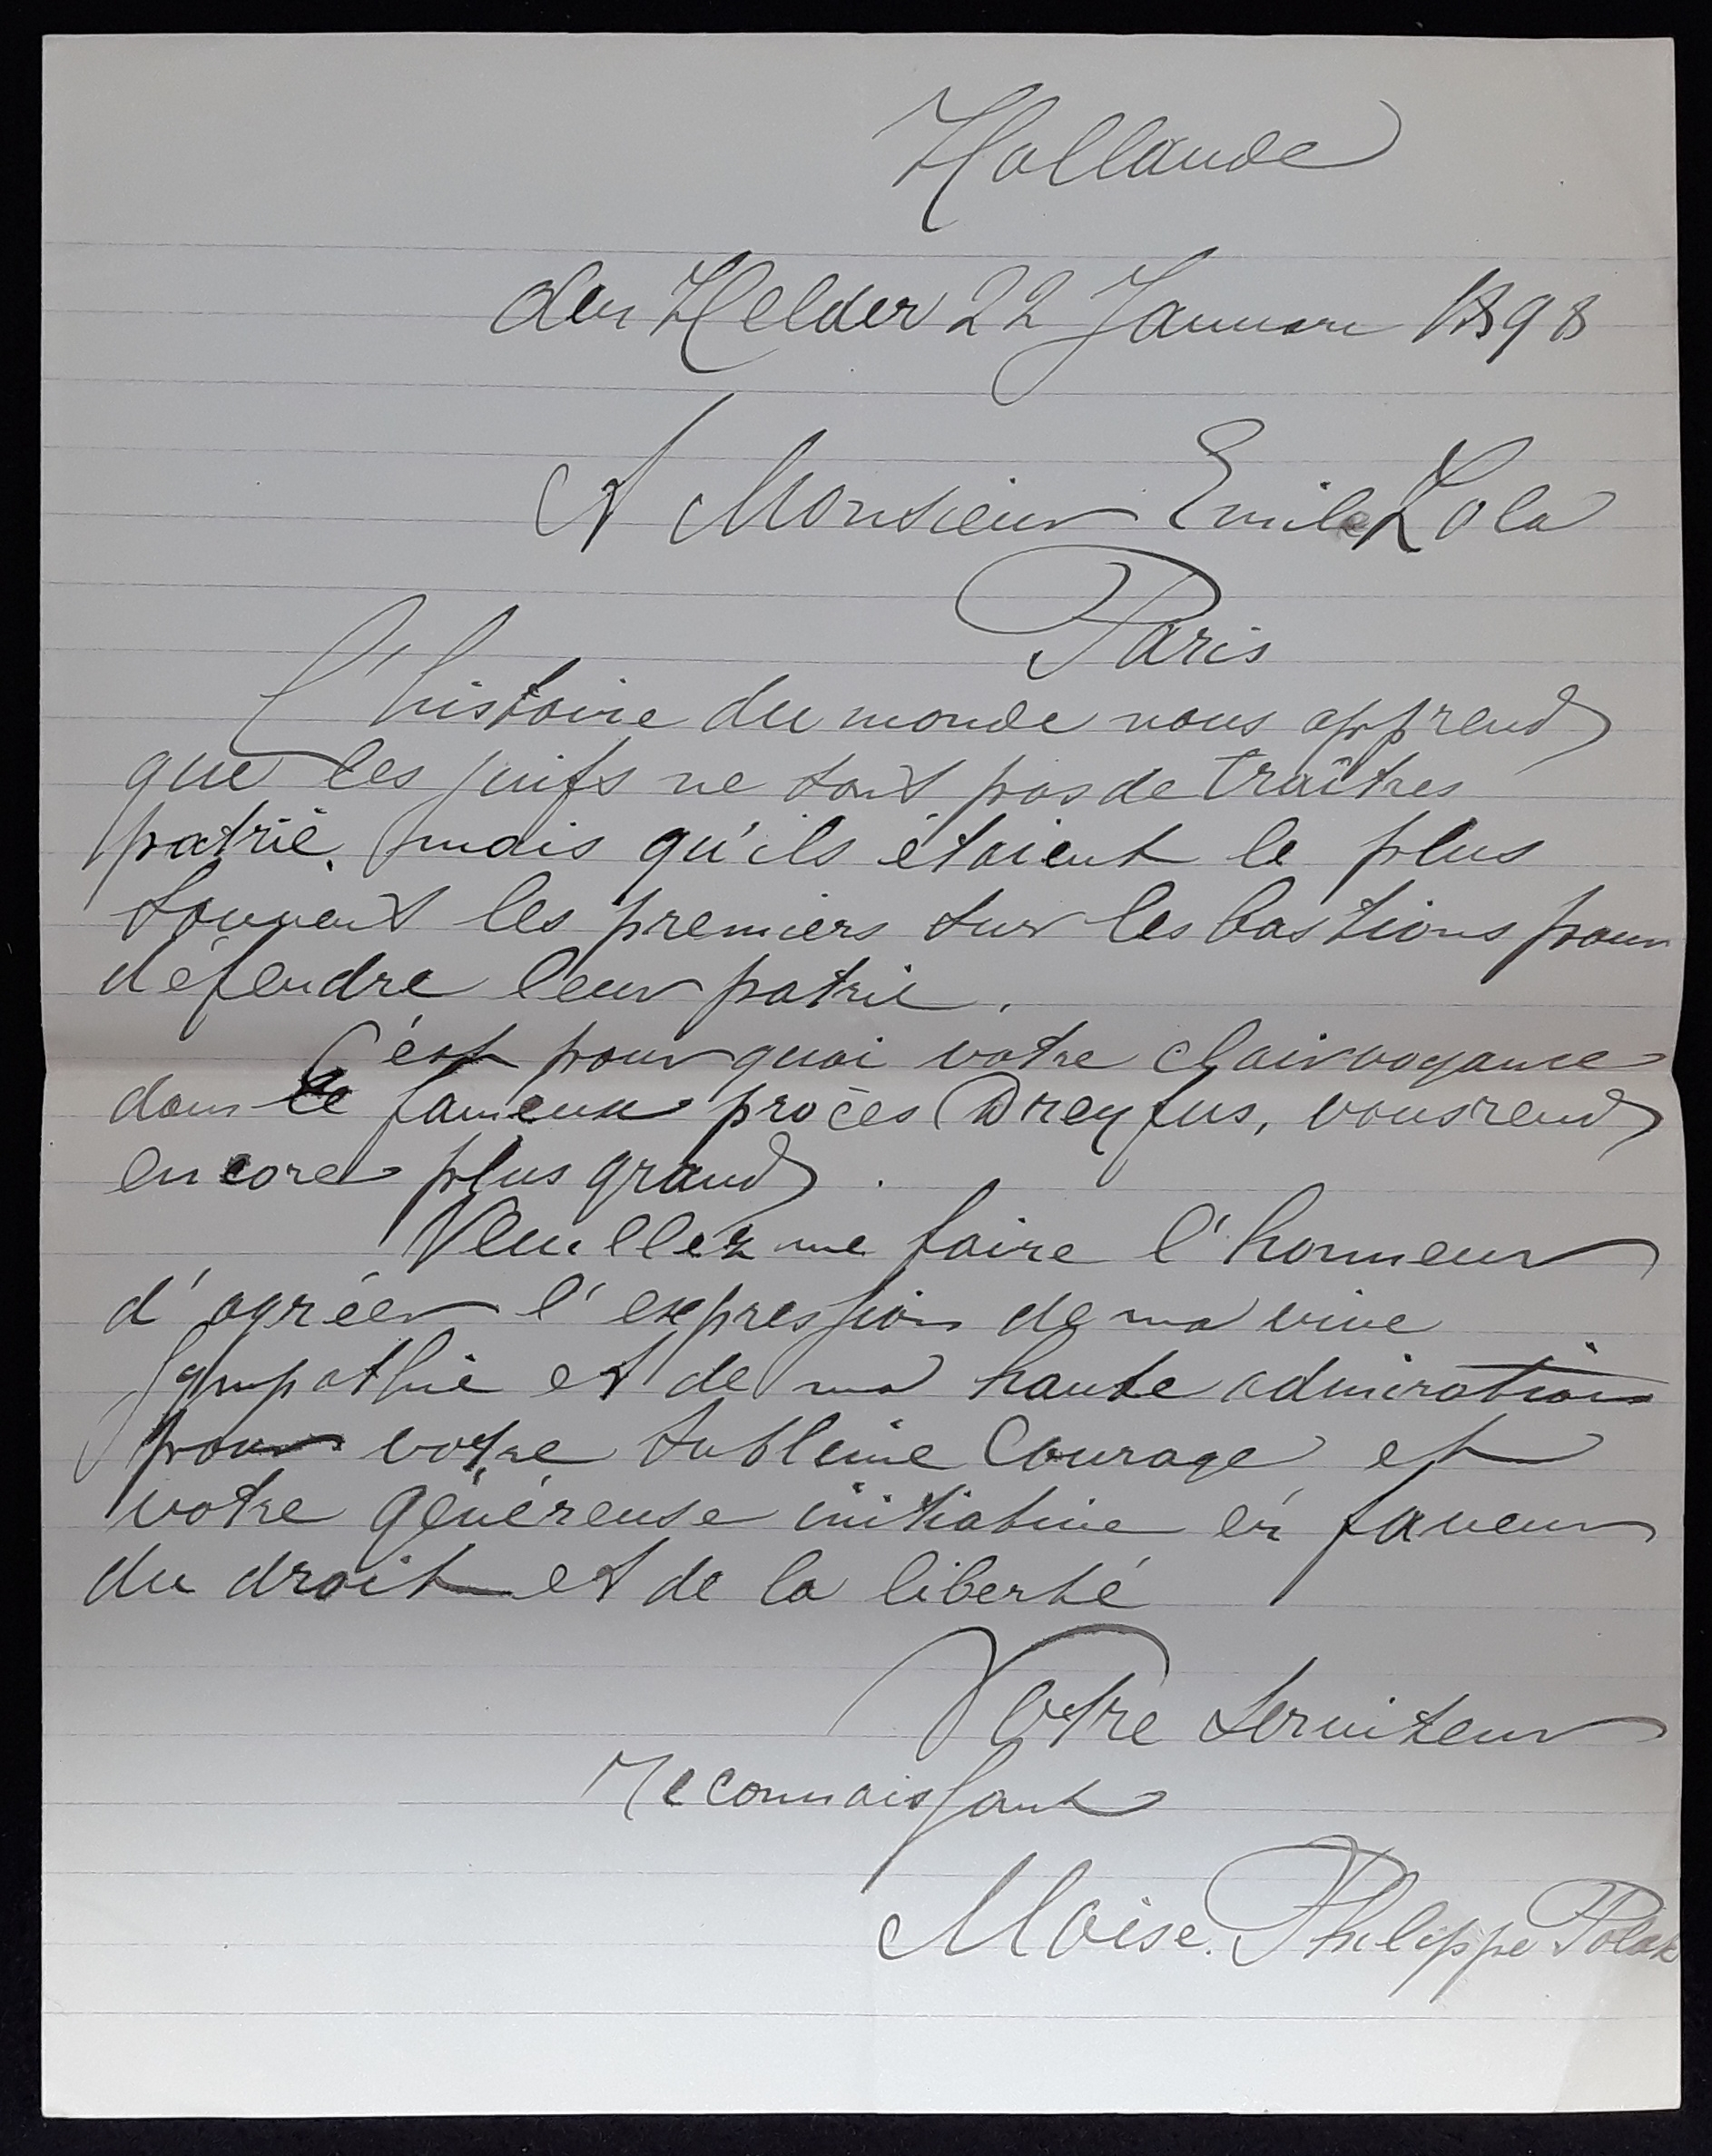 Hollande
den Helder 22 Januari 1898
A Monsieur Emile Zola
Paris
L'histoire du monde nous apprend
que les juifs ne sont pas de traîtres
patrie, mais qu'ils étaient le plus
souvent les premiers sur les bastions pour
défendre leur patrie.
C'est pourquoi votre clairvoyance
dans le fameux procès Dreyfus, vous rend
encore plus grand.
Veuillez me faire l'honneur
d'agréer l'expression de ma vive
sympathie et de ma haute admiration
pour votre sublime courage et
votre généreuse initiative en faveur
du droit et de la liberté
Votre serviteur
reconnaissant
Moise. Philippe Polak